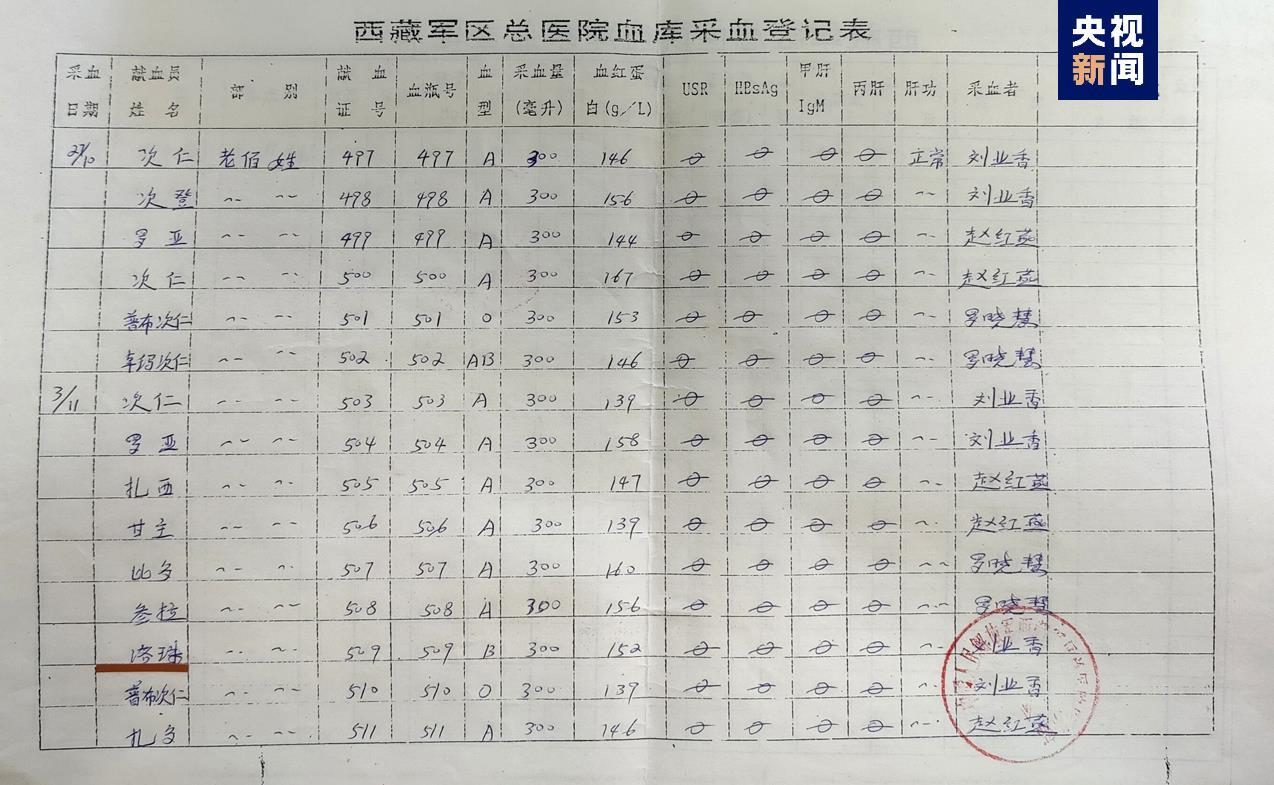 西藏军区总医院血库采血登记表
央视
新闻
采血日期 献血员姓名 部别 献血证号 血瓶号 血型 采血量(毫升) 血红蛋白(g/L) USR HBsAg 甲肝IgM 丙肝 肝功 采血者
27/10 次仁 老佰姓 497 497 A 300 146 ⊖ ⊖ ⊖ ⊖ 正常 刘业香
次登 〃 〃 498 498 A 300 156 ⊖ ⊖ ⊖ ⊖ 〃 刘业香
罗亚 〃 〃 499 499 A 300 144 ⊖ ⊖ ⊖ ⊖ 〃 赵红燕
次仁 〃 〃 500 500 A 300 167 ⊖ ⊖ ⊖ ⊖ 〃 赵红燕
普布次仁 〃 〃 501 501 O 300 153 ⊖ ⊖ ⊖ ⊖ 〃 罗晓慧
卓玛次仁 〃 〃 502 502 AB 300 146 ⊖ ⊖ ⊖ ⊖ 〃 罗晓慧
3/11 次仁 〃 〃 503 503 A 300 139 ⊖ ⊖ ⊖ ⊖ 〃 刘业香
罗亚 〃 〃 504 504 A 300 158 ⊖ ⊖ ⊖ ⊖ 〃 刘业香
扎西 〃 〃 505 505 A 300 147 ⊖ ⊖ ⊖ ⊖ 〃 赵红燕
甘主 〃 〃 506 506 A 300 139 ⊖ ⊖ ⊖ ⊖ 〃 赵红燕
比多 〃 〃 507 507 A 300 160 ⊖ ⊖ ⊖ ⊖ 〃 罗晓慧
参拉 〃 〃 508 508 A 300 156 ⊖ ⊖ ⊖ ⊖ 〃 罗晓慧
洛珠 〃 〃 509 509 B 300 152 ⊖ ⊖ ⊖ ⊖ 〃 刘业香
普布次仁 〃 〃 510 510 O 300 139 ⊖ ⊖ ⊖ ⊖ 〃 刘业香
扎多 〃 〃 511 511 A 300 146 ⊖ ⊖ ⊖ ⊖ 〃 赵红燕